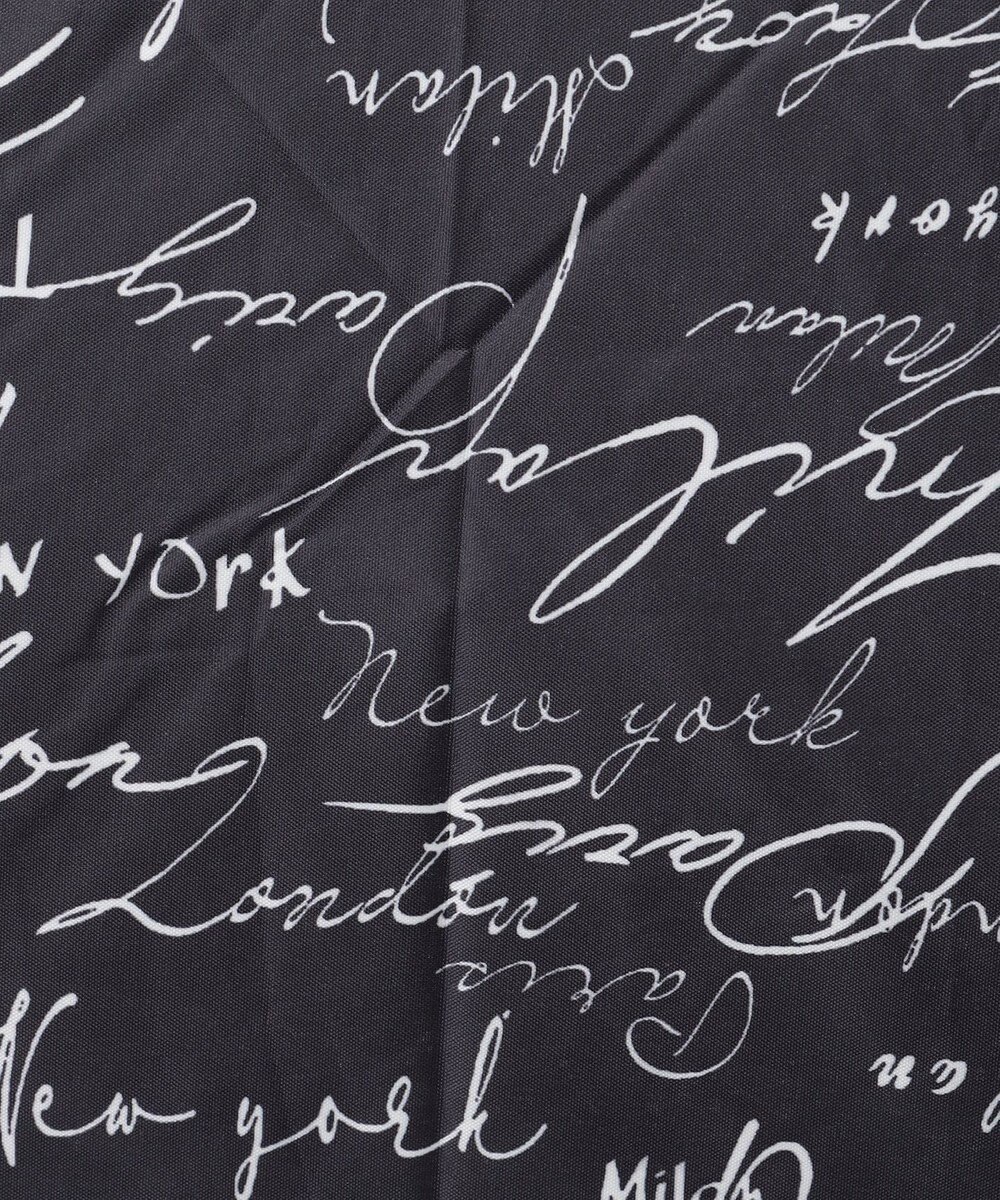 Milan
york
Paris
Milan
Milan
york
New york
Paris
London
Paris
New york
Milan